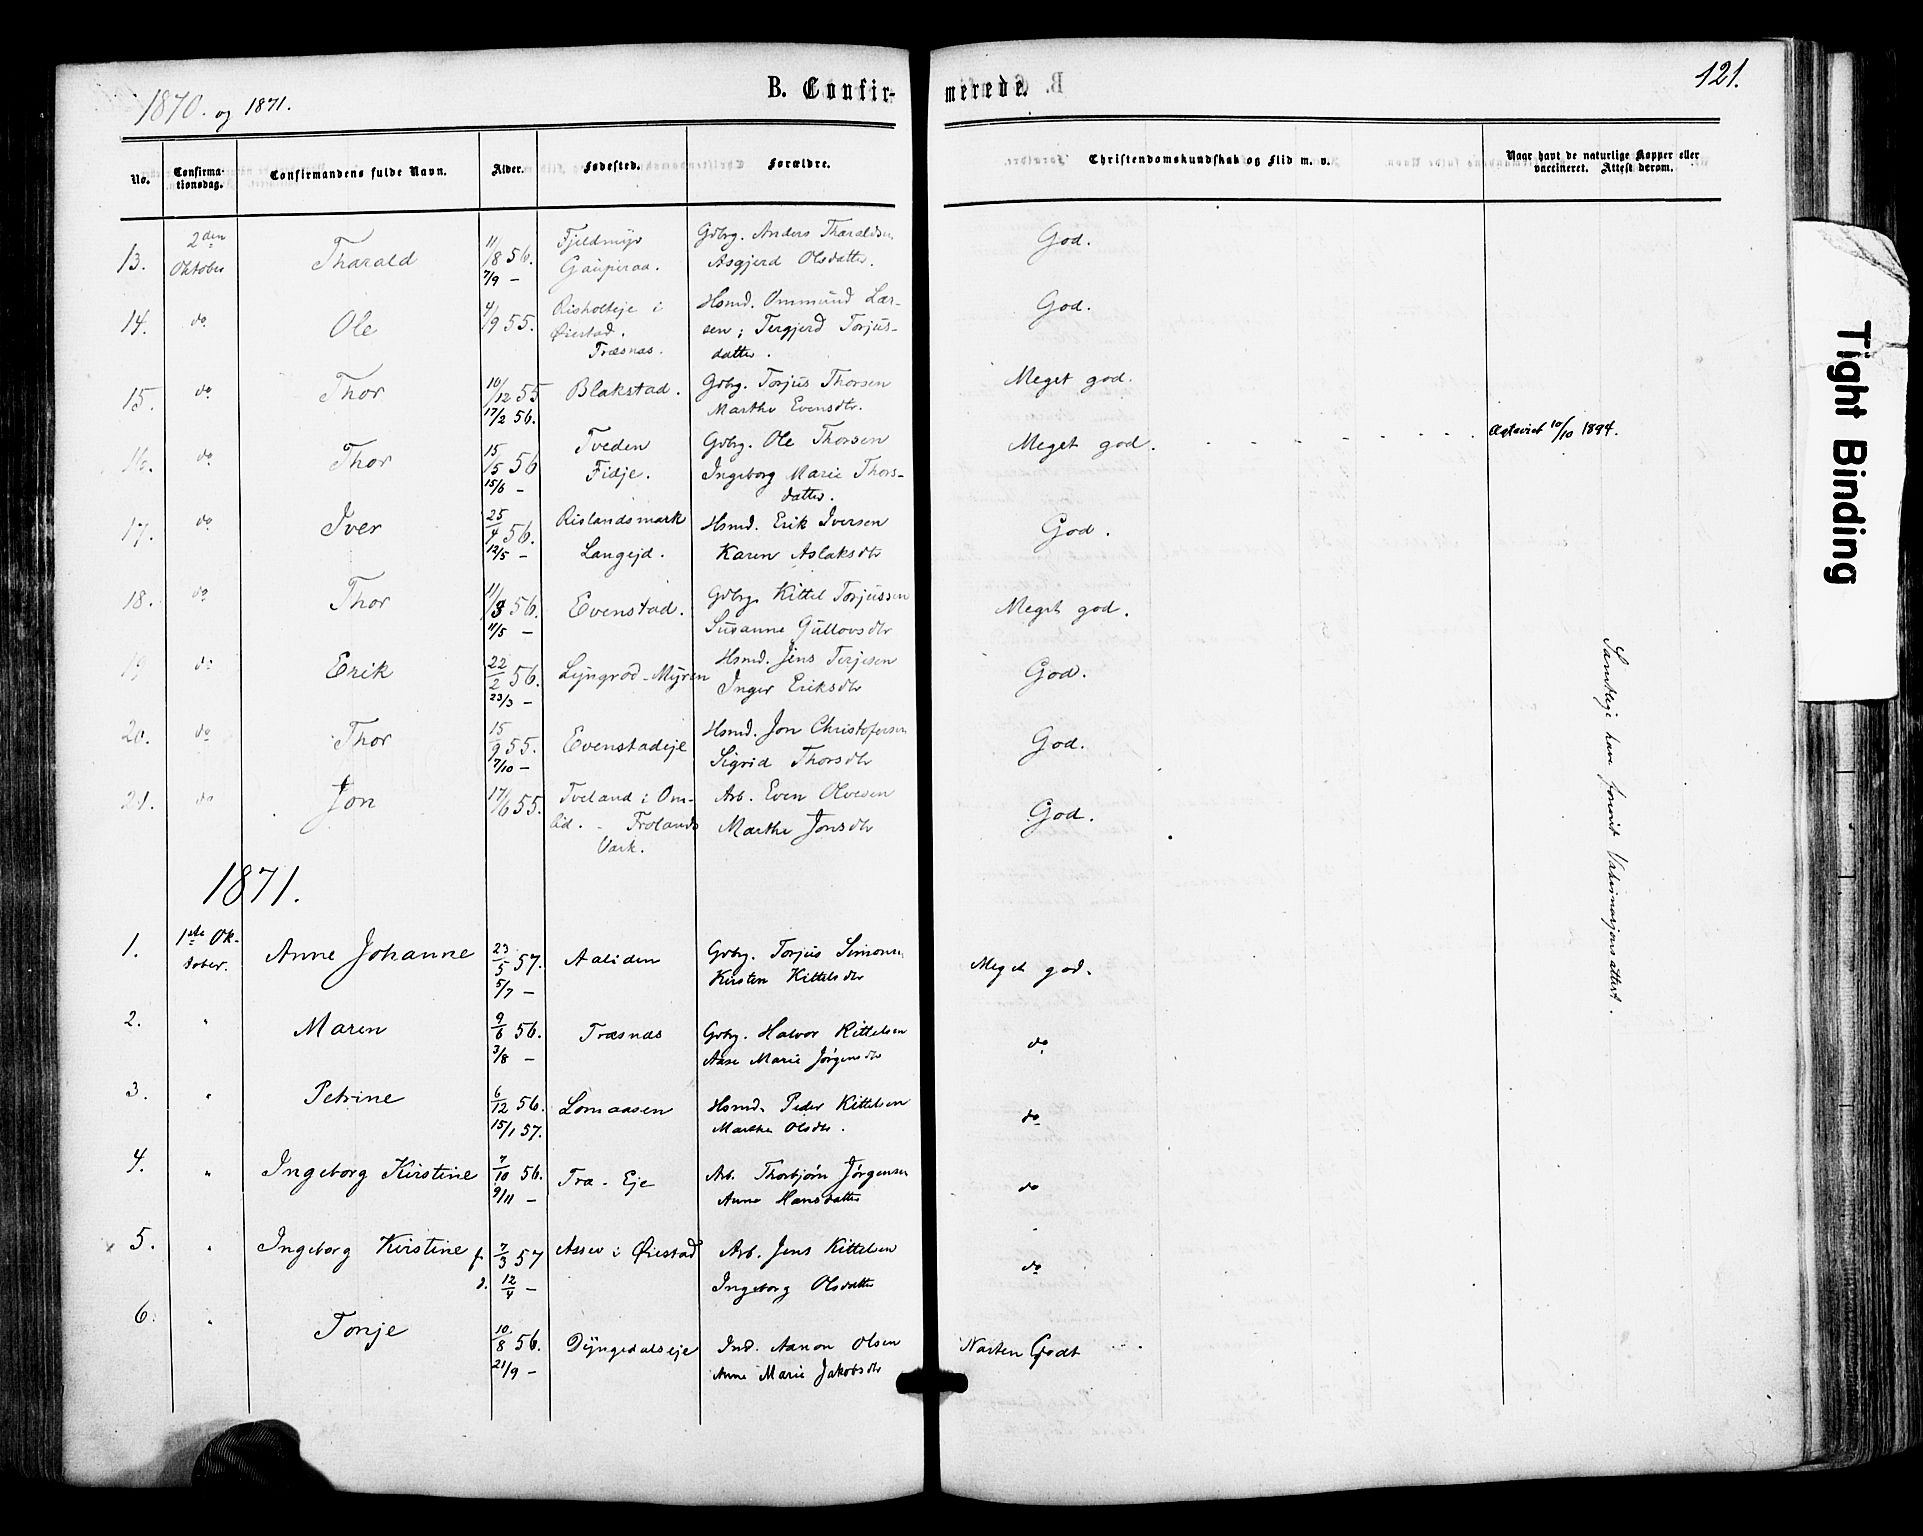 1870. og 1871.
B. Confir-
merede.
121.
No.
Confirma-
tionsdag.
Confirmandens fulde Navn.
Alder.
Fødested.
Forældre.
Christendomskundskab og Flid m. v.
Naar havt de naturlige Kopper eller
vaccineret. Attest derom.
13. 2den Oktober Tharald 11/8 56. 7/9 – Fjeldmyr Gauperaa. Gdbrg. Anders Tharaldsen Asgjerd Olsdatter. God.
14. do Ole 4/9 55. Risholteje i Øiestad. Træsnæs. Hsmd. Ommund Lar-
sen; Tergjerd Torjus-
datter. God.
15. do Thor 10/12 55 17/2 56. Blakstad. Gdbrg. Torjus Thorsen Marthe Evensdtr. Meget god.
16. do Thor 15/5 56 15/6 – Tveden Fidje. Gdbrg. Ole Thorsen Ingeborg Marie Thors-
datter. Meget god. - - - - - - - 10/10 1894.
17. do Iver 25/4 56. 12/5 – Rislandsmark Langejd. Hsmd. Erik Iversen Karen Aslaksdtr God.
18. do Thor 11/3 56. 11/5 – Evenstad. Gdbrg. Kittel Torjussen Susanne Gullovsdtr Meget god.
19 do Erik 22/2 56. 23/3 – Lyngrod-Myren Hsmd. Jens Terjesen Inger Eriksdtr God.
20. do Thor 15/9 55. 7/10 – Evenstadeje Hsmd. Jon Christofersen Sigrid Thorsdtr God.
21. do Jon 17/6 55. Tveland i Om-
lid. - Frolands
Værk. Arb. Even Olvesen Marthe Jonsdtr God.
Samtlige have forevist Vakcinasjonsattest.
1871.
1. 1ste Ok-
tober. Anne Johanne 23/5 57. 5/7 – Aaliden Gdbrg. Torjus Simonsen Kirsten Kittelsdtr Meget god.
2. " Maren 9/6 56. 3/8 – Træsnæs Gdbrg. Halvor Kittelsen Aase Marie Jørgensdtr do
3. " Petrine 6/12 56. 15/1 57. Lømaasen Hsmd. Peder Kittelsen Marthe Olsdtr. do
4. " Ingeborg Kirstine 7/10 56. 9/11 – Tra-Eje Arb. Thorbjørn Jørgensen Anne Hansdatter do
5. " Ingeborg Kirstine f. 7/3 57 d. 12/4 – Assev i Øiestad Arb. Jens Kittelsen Ingeborg Olsdatter do
6. " Tonje 10/8 56. 21/9 – Dyngedalseje Ind. Aanon Olsen Anne Marie Jakobsdtr Næsten Godt
Tight Binding